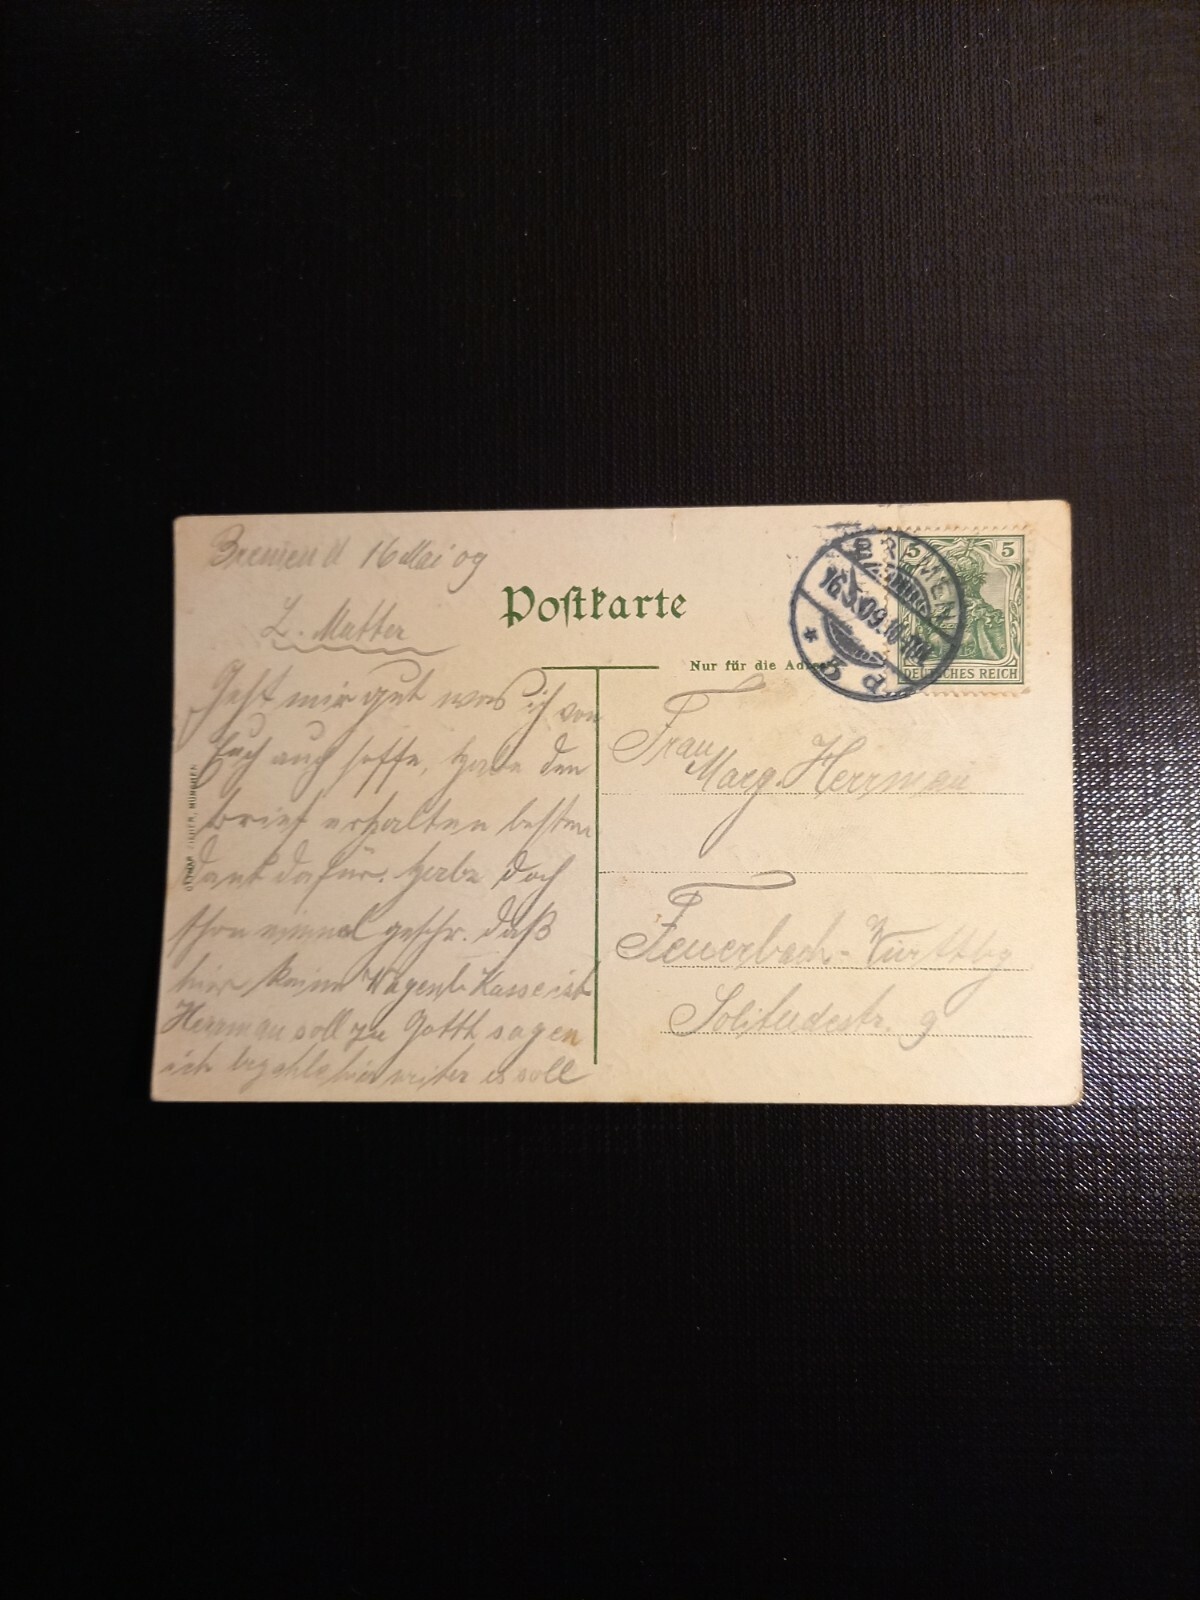 Bremen d 16 Mai 09
L. Mutter
Geht mir gut was ich von
Euch auch hoffe, habe den
brief erhalten besten
dank dafür. habe doch
schon einmal geschr. daß
hier keine Wagenb Kasse ist
Herrman soll zu Gottl sagen
ich bezahle hier weiter es soll
Postkarte
Nur für die Adresse
BREMEN
16.5.09.10-11V.
* 5 d.
5 5
DEUTSCHES REICH
Frau
Marg. Herrman
Feuerbach - Württbg
Solitudestr. 9
OTTMAR ZIEHER, MÜNCHEN